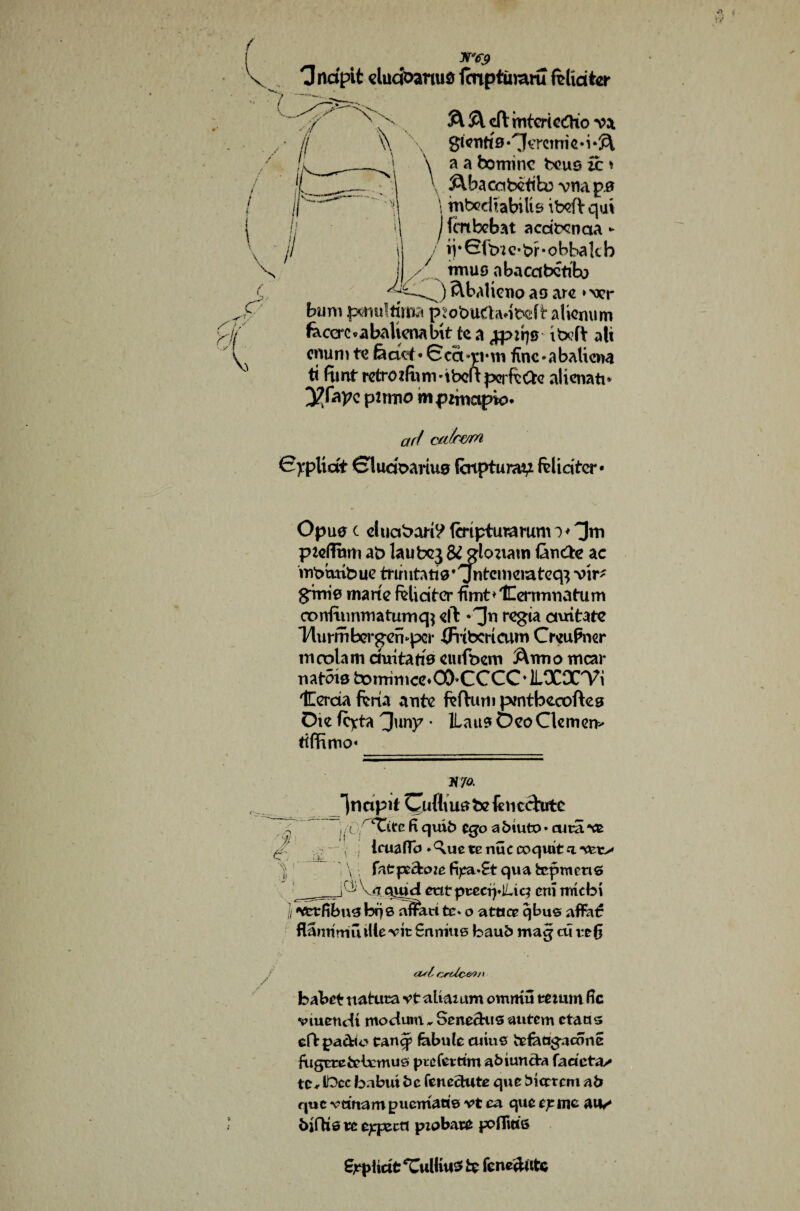 N°69
Incipit elucidarius scripturarũ feliciter
A A est interiectio va
gientis·Jeremie·i·A
a a domine deus ⁊c
Abacadetibo vna ps
scribebat
abacadetibo
Abalieno as are·ver
bum penultima producta·idest alienum
facere·abalienabit te a ꝓprijs idest ali
enum te faciet·Ecci·xi·in fine·abaliena
ti sunt retrorsum·idest perfecte alienati·
Ysaye primo in principio·
ad calcem
Explicit Elucidarius scripturaꝝ feliciter·
Opus elucidarij scripturarum
pressum ad laudeʒ & gloriam sancte ac
indiuidue trinitatis·Intemerateqꝫ vir
ginis marie feliciter finit·Terminatum
consummatumqꝫ est·In regia ciuitate
Nurmbergen·per Fridericum Creußner
incolam ciuitatis eiusdem Anno incar
natõis dominice·M·CCCC·LXXVi
Tercia feria ante festum penthecostes
Die sexta Juny· Laus Deo Clemen
tissimo·
N 70.
Incipit Tullius de senectute
Tite si quid ego adiuto·curã ve
leuasso·Que te nũc coquit ⁊ ver
sat pectore fixa·Et qua depmeris
quid erit precij·Licʒ eni michi
versibus hijs affari te·o attice qbus affat
flãminiũ ille vir Ennius haud mag cũ re
ad calcem
habet natura vt aliarum omniũ rerum sic
viuendi modum. Senectus autem etatis
est pactio tanqꝫ fabule cuius defatigacõne
fugere debemus presertim adiuncta sacieta
te. Hec habui de senectute que dicerem ad
que vtinam pueniatis vt ea que ex me au
distis re experti probare possitis
Explicit Tullius de senectute